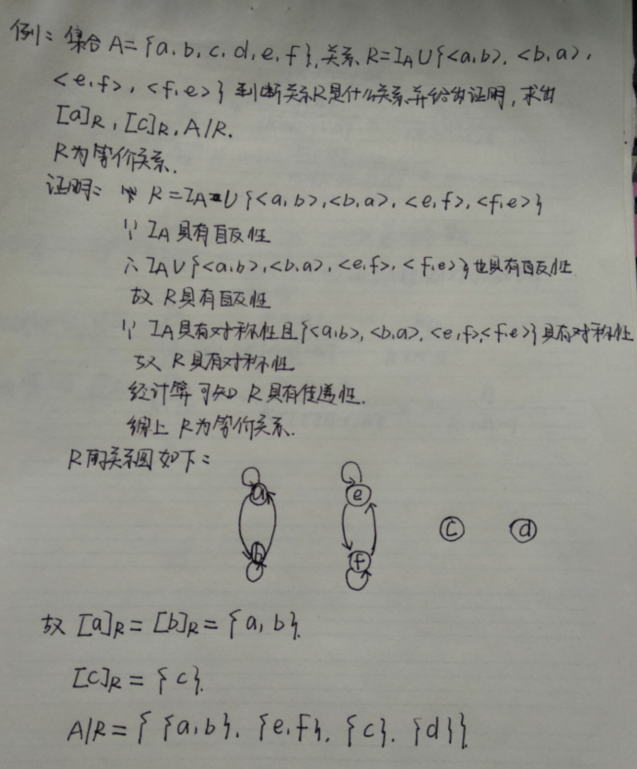 例:集合A={a,b,c,d,e,f},关系R=I_A∪{<a,b>,<b,a>,
<e,f>,<f,e>}判断关系R是什么关系并给出证明,求出
[a]_R,[c]_R,A/R.
R为等价关系.
证明:∵ R=I_A∪{<a,b>,<b,a>,<e,f>,<f,e>}
∵ I_A具有自反性
∴ I_A∪{<a,b>,<b,a>,<e,f>,<f,e>}也具有自反性
故 R具有自反性
∵ I_A具有对称性且{<a,b>,<b,a>,<e,f>,<f,e>}具有对称性
故 R具有对称性
经计算可知 R具有传递性.
综上 R为等价关系.
R的关系图如下:
a e
c d
b f
故 [a]_R=[b]_R={a,b}.
[c]_R={c}.
A/R={{a,b},{e,f},{c},{d}}.